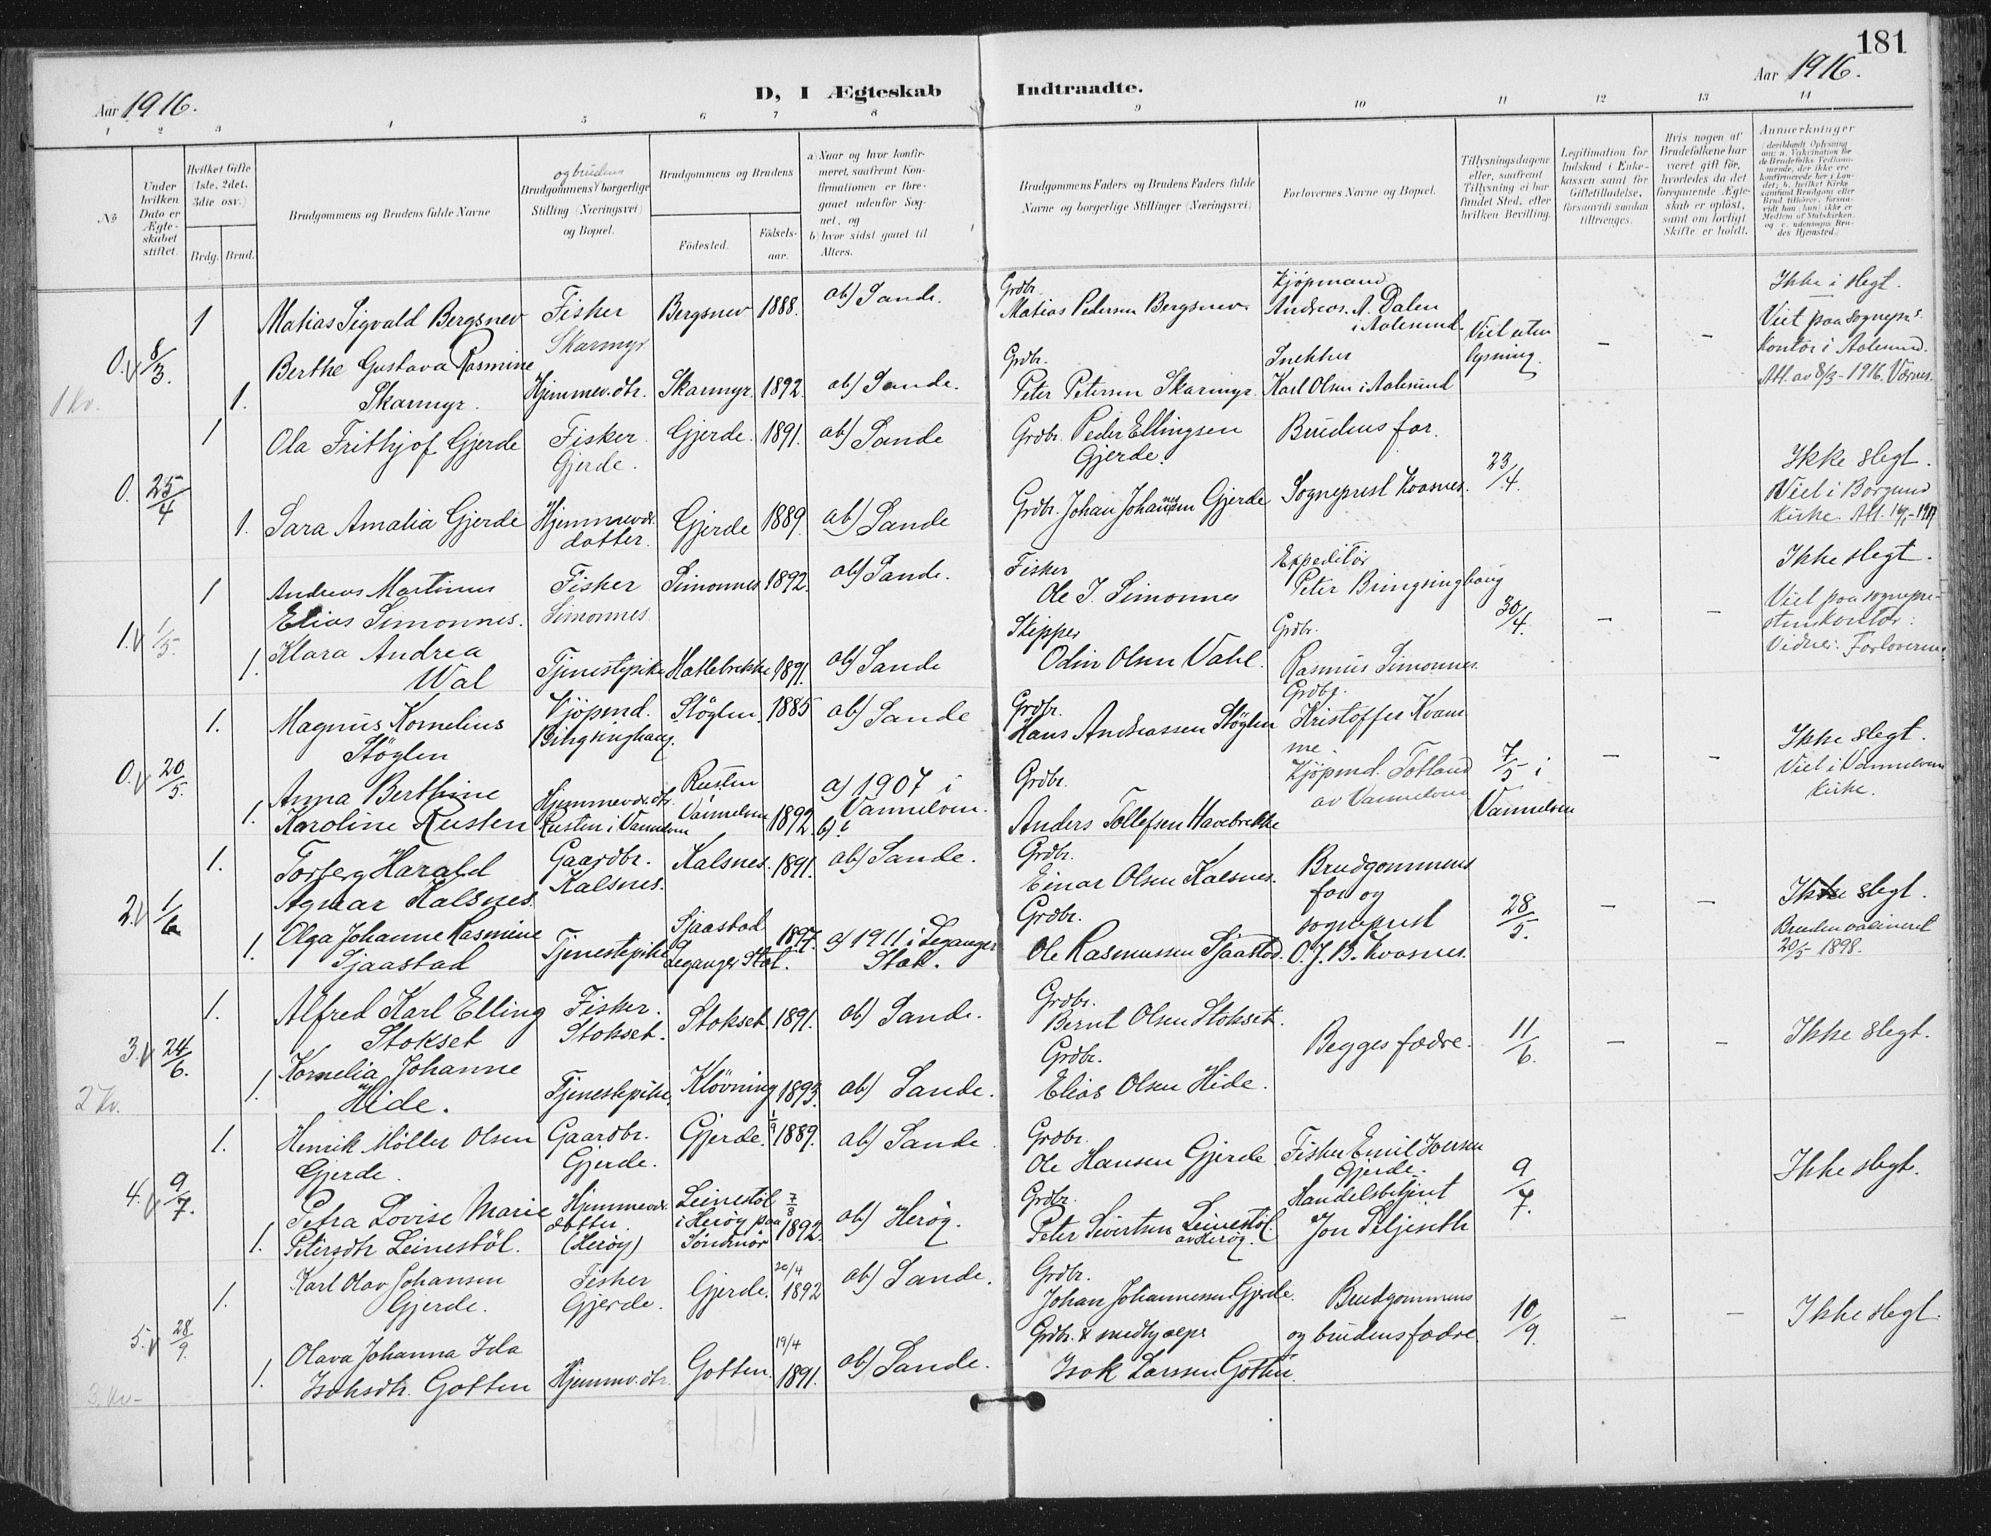 181
Aar 1916.
D, I Ægteskab Indtraadte.
Aar 1916.
1 2 3 4 5 6 7 8 9 10 11 12 13 14
No
Under hvilken Dato er Ægteskabet stiftet.
Hvilket Gifte 1ste, 2det, 3die osv.)
Brdg. Brud.
Brudgommens og Brudens fulde Navne
og brudens
Brudgommens borgerlige Stilling (Næringsvei) og Bopæl.
Brudgommens og Brudens
Fødested. Fødselsaar.
a) Naar og hvor konfirmeret, saafremt Konfirmationen er foregaaet udenfor Sognet, og
b) hvor sidst gaaet til Alters.
Brudgommens Faders og Brudens Faders fulde Navne og borgerlige Stillinger (Næringsvei)
Forlovernes Navne og Bopæl.
Tillysningsdagene eller, saafremt Tillysning ei har fundet Sted, efter hvilken Bevilling.
Legitimation for Indskud i Enkekassen samt for Giftetilladelse, forsaavidt saadan tiltrænges.
Hvis nogen af Brudefolkene har været gift før, hvorledes da det foregaaende Ægteskab er opløst, samt om lovligt Skifte er holdt.
Anmærkninger
0. 8/3. 1 Matias Sigvald Bergsnev
Fisker Skarmyr
Bergsnev 1888. ab) Sande.
Grdbr. Matias Pedersen Bergsnev
Kjøpmand Andreas A. Dalen i Aalesund.
Viet uten lysning. – –
Ikke i slegt.
Viet paa sogneprs. Kontor i Aalesund.
Att. av 8/3 - 1916. Værnes.
1 kv. 1. Berthe Gustava Rasmine Skarmyr.
Hjemmev. dtr. Skarmyr 1892. ab) Sande.
Grdbr. Peter Petersen Skarmyr
Snekker Karl Olsen i Aalesund
0. 25/4 1 Ola Frithjof Gjerde
Fisker. Gjerde.
Gjerde. 1891. ab) Sande
Grdbr. Peder Ellingsen Gjerde.
Brudens far.
23/4.
Ikke slegt.
Viet i Borgund kirke.
1. Sara Amalia Gjerde
Hjemmev. datter.
Gjerde 1889. ab) Sande
Grdbr. Johan Johannesen Gjerde
Sogneprest Kvasnes.
1. 1/5. 1 Andreas Martinus Elias Simonnes.
Fisker Simonnes.
Simonnes 1892. ab) Sande.
Fisker Ole J. Simonnes
Expeditør Peter Bringsinghaug
30/4. – –
Ikke slegt.
Viet paa sogneprestens kontor.
Vidner: Forloverne
1. Klara Andrea Wal
Tjenestepike Hatlebrekke 1891. ab) Sande
Skipper Odin Olsen Vahl.
Grdbr. Rasmus Simonnes
0. 20/5. 1. Magnus Kornelius Støylen
Kjøpmd. Bringsinghaug.
Støylen 1885 ab) Sande
Grdbr. Hans Andreassen Støylen
Grdbr. Kristoffer Kvamme.
7/5 i Vannelven – –
Ikke slegt.
Viet i Vannelven kirke.
1. Anna Berthine Karoline Rusten
Hjemmev. dtr. Rusten i Vannelven
Rusten Vannelven 1892. a) 1907 i Vannelven. b) ?
Grdbr. Anders Tollefsen Havebrekke
Kjøpmd. Totland av Vannelven
2. 1/6 1. Torberg Harald Agnar Kalsnes
Gaardbr. Kalsnes.
Kalsnes. 1891. ab) Sande.
Grdbr. Einar Olsen Kalsnes.
Brudgommens far og sogneprest O. J. B. Kvasnes.
28/5. – –
Ikke slegt.
Bruden vaccineret 20/5 1898.
1. Olga Johanne Rasmine Sjaastad
Tjenestepike
Sjaastad Leganger Stat. 1897. a) 1911 i Leganger Stat.
Grdbr. Ole Rasmussen Sjaastad.
3. 24/6. 1. Alfred Karl Elling Stokset
Fisker. Stokset.
Stokset. 1891. ab) Sande.
Grdbr. Bernt Olsen Stokset.
Begges fædre.
11/6. – –
Ikke slegt.
2 kv. 1. Kornelia Johanne Hide.
Tjenestepike. Kløvning 1893. ab) Sande.
Grdbr. Elias Olsen Hide.
4. 9/7. 1. Henrik Møller Olsen Gjerde.
Gaardbr. Gjerde.
Gjerde. 1/9 1889. ab) Sande
Grdbr. Ole Hansen Gjerde
Fisker Emil Iversen Gjerde.
9/7.
Ikke slegt.
1. Petra Lovise Marie Petersdtr. Leinestøl.
Hjemmev. datter. (Herøy)
Leinestøl i Herøy paa Søndmør 7/8 1892. ab) Herøy.
Grdbr. Peter Sivertsen Leinestøl. av Herøy.
Handelsbetjent Jon Seljeseth
5. 28/9. 1. Karl Olav Johansen Gjerde.
Fisker Gjerde.
Gjerde. 20/4 1892 ab) Sande.
Grdbr. Johan Johannessen Gjerde.
Brudgommens og brudens fædre
10/9. – –
Ikke slegt.
3 kv- 1. Olava Johanna Ida Isaksdtr. Gotten
Hjemmev. dtr. Gotten. 19/4 1891. ab) Sande.
Grdbr. & medhjælper Isak Larssen Gotten.